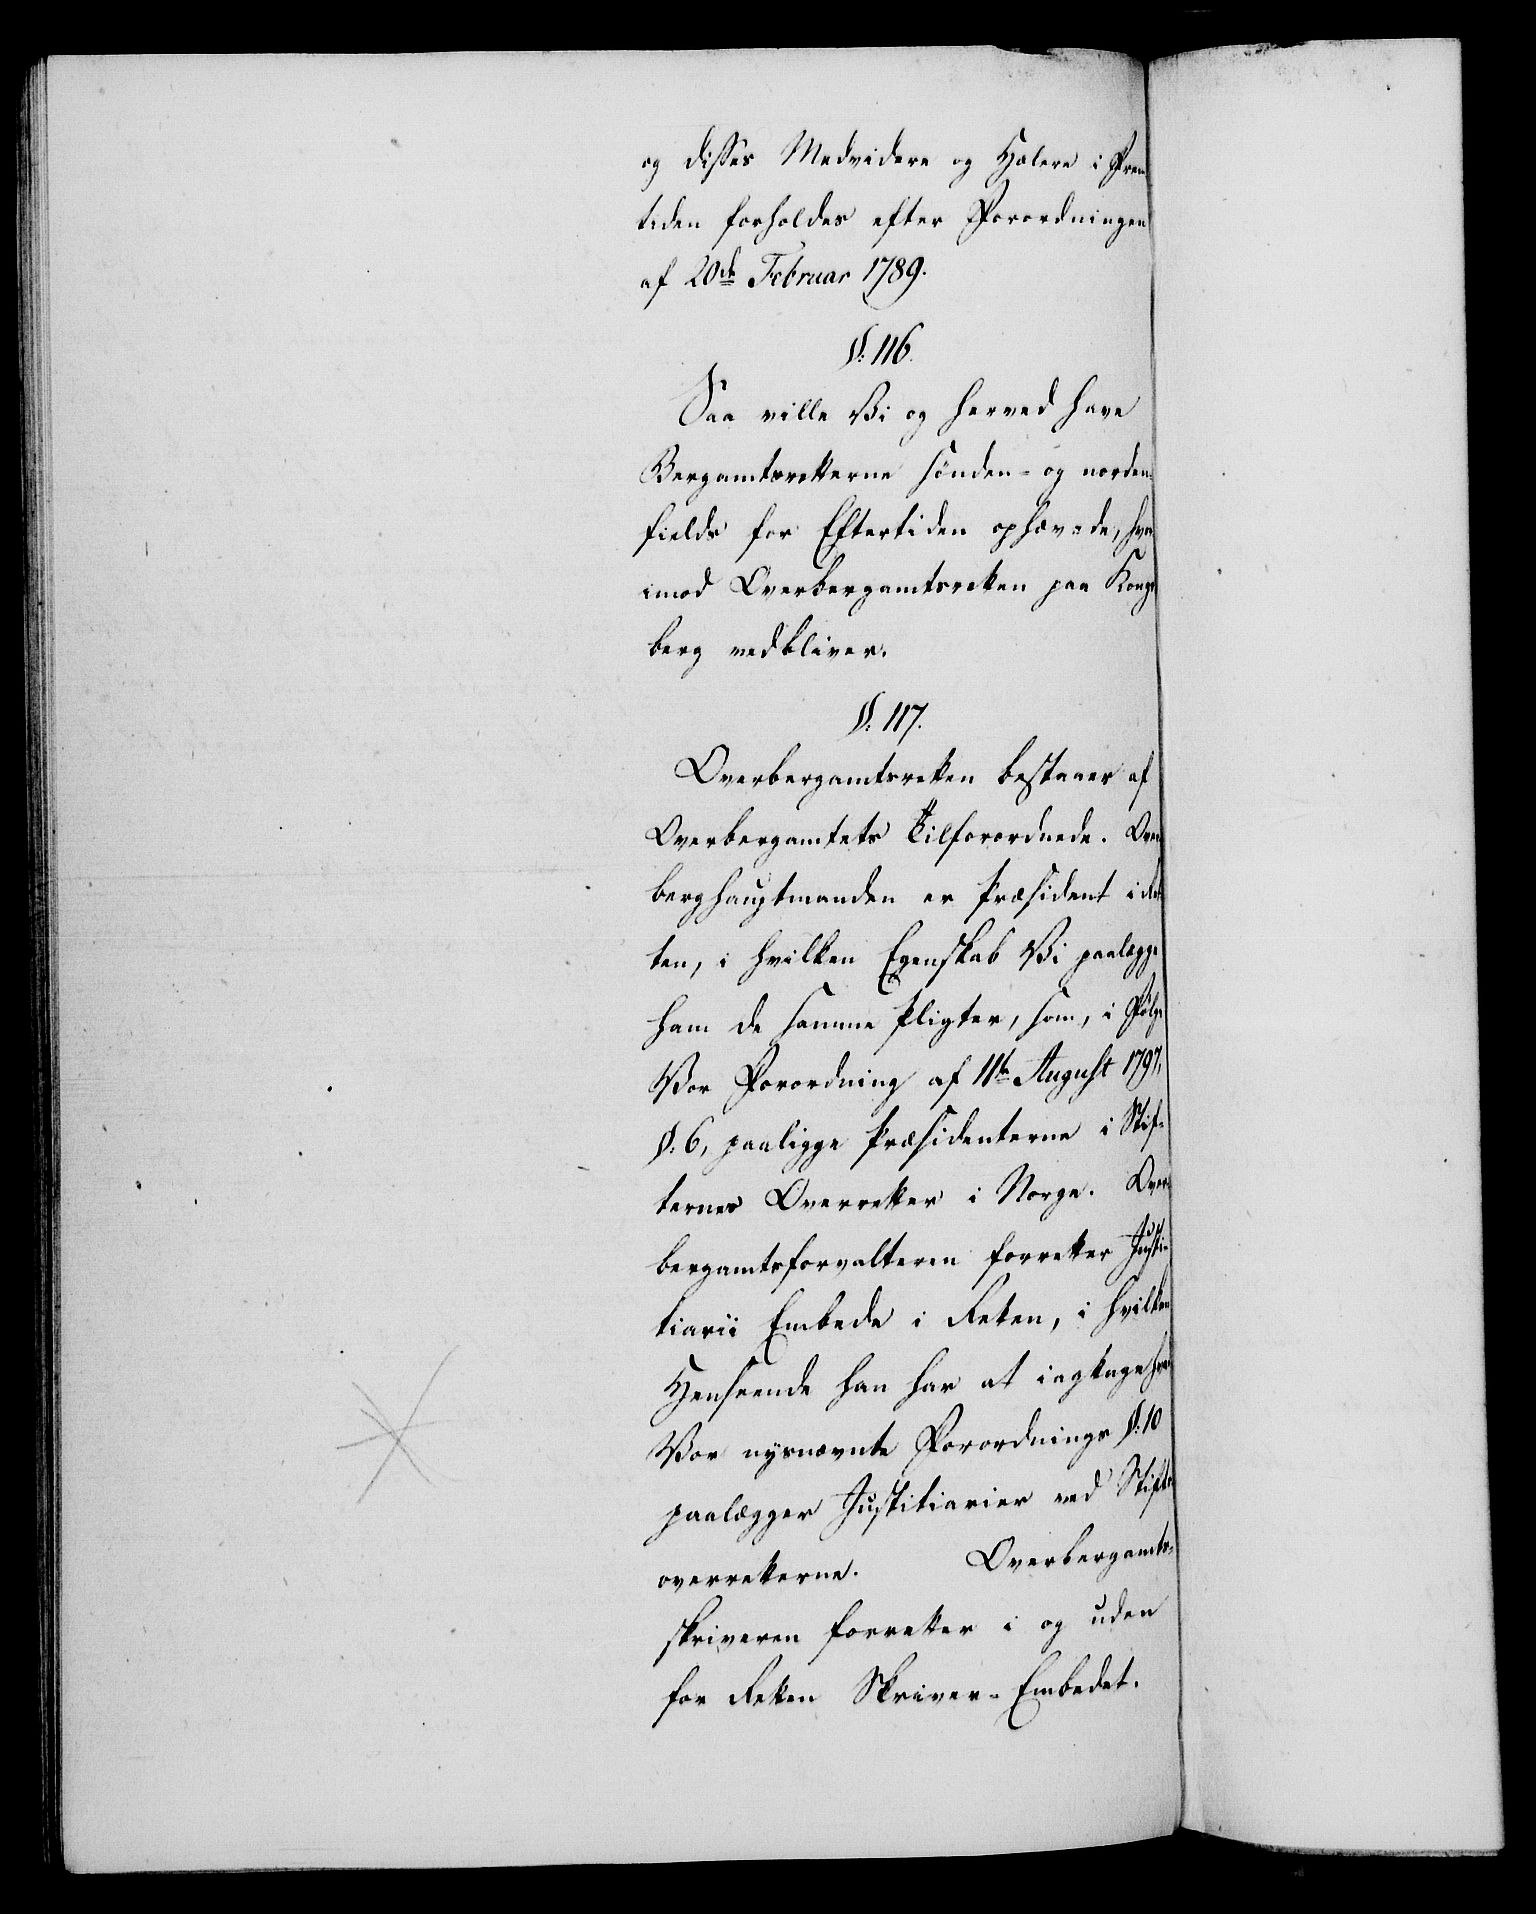 og disses Medvidere og Hælere i Frem
tiden forholdes efter Forordningen
af 20de Februar 1789.
§. 116.
Saa ville Vi og herved have
Bergamtsretterne sønden- og norden-
fields for Eftertiden ophævede, hvor
imod Overbergamtsretten paa Kongs
berg vedbliver.
§. 117.
Overbergamtsretten bestaaer af
Overbergamtets Tilforordnede. Over
berghauptmanden er Præsident i Ret
ten, i hvilken Egenskab Vi paalægge
ham de samme Pligter, som, i Følge
Vor Forordning af 11te August 1797,
§. 6, paaligge Præsidenterne i Stif-
ternes Overretter i Norge. Over-
bergamtsforvalteren forretter Justi-
tiarii Embede i Retten, i hvilken
Henseende han har at iagttage hvad
Vor nysnævnte Forordnings §. 10
paalægger Justitiarier ved Stifts
overretterne. Overbergamts-
skriveren forretter i og uden
for Retten Skriver-Embedet.